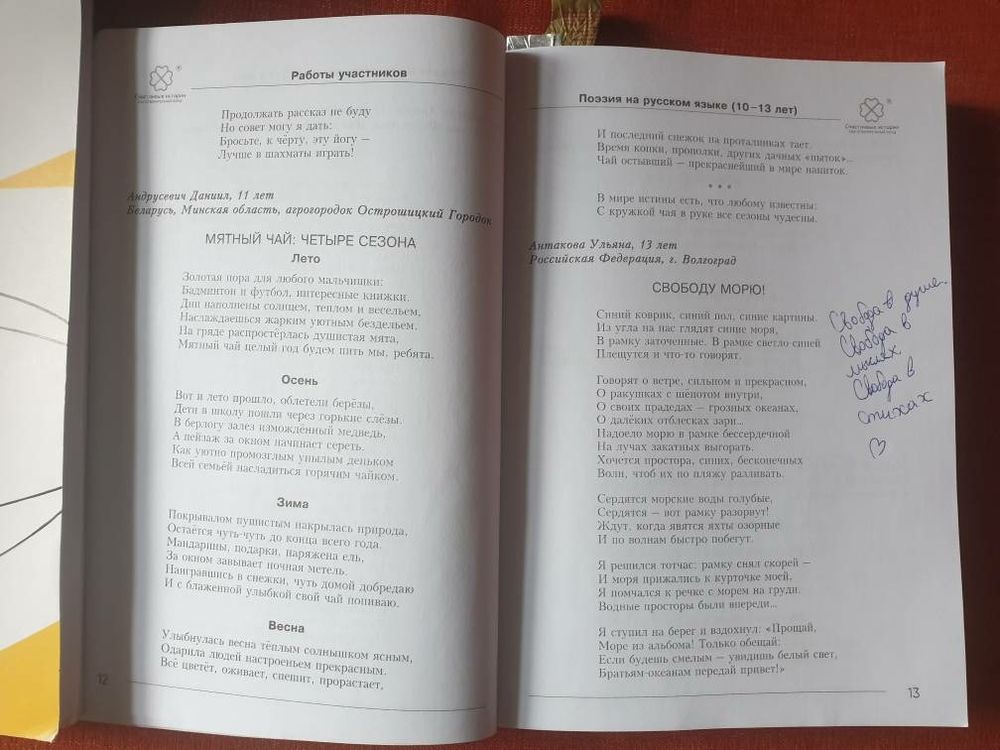 Счастливые истории
Работы участников
Продолжать рассказ не буду
Но совет могу я дать:
Бросьте, к чёрту, эту йогу –
Лучше в шахматы играть!
Андрусевич Даниил, 11 лет
Беларусь, Минская область, агрогородок Острошицкий Городок
МЯТНЫЙ ЧАЙ: ЧЕТЫРЕ СЕЗОНА
Лето
Золотая пора для любого мальчишки:
Бадминтон и футбол, интересные книжки.
Дни наполнены солнцем, теплом и весельем,
Наслаждаешься жарким уютным бездельем.
На гряде распростёрлась душистая мята,
Мятный чай целый год будем пить мы, ребята.
Осень
Вот и лето прошло, облетели берёзы,
Дети в школу пошли через горькие слёзы.
В берлогу залез измождённый медведь,
А пейзаж за окном начинает сереть.
Как уютно промозглым унылым деньком
Всей семьёй насладиться горячим чайком.
Зима
Покрывалом пушистым накрылась природа,
Остаётся чуть-чуть до конца всего года.
Мандарины, подарки, наряжена ель,
За окном завывает ночная метель.
Наигравшись в снежки, чуть домой добредаю
И с блаженной улыбкой свой чай попиваю.
Весна
Улыбнулась весна тёплым солнышком ясным,
Одарила людей настроеньем прекрасным.
Всё цветёт, оживает, спешит, прорастает,
12
Поэзия на русском языке (10–13 лет)
Счастливые истории
И последний снежок на проталинках тает.
Время копки, прополки, других дачных «пыток»...
Чай остывший – прекраснейший в мире напиток.
* * *
В мире истины есть, что любому известны:
С кружкой чая в руке все сезоны чудесны.
Антакова Ульяна, 13 лет
Российская Федерация, г. Волгоград
СВОБОДУ МОРЮ!
Синий коврик, синий пол, синие картины.
Из угла на нас глядят синие моря,
В рамку заточенные. В рамке светло синей
Плещутся и что-то говорят.
Говорят о ветре, сильном и прекрасном,
О ракушках с шёпотом внутри,
О своих прадедах – грозных океанах,
О далёких отблесках зари...
Надоело морю в рамке бессердечной
На лучах закатных выгорать.
Хочется простора, синих, бесконечных
Волн, чтоб их по пляжу разливать.
Сердятся морские воды голубые,
Сердятся – вот рамку разорвут!
Ждут, когда явятся яхты озорные
И по волнам быстро побегут.
Я решился тотчас: рамку снял скорей –
И моря прижались к курточке моей.
Я помчался к речке с морем на груди.
Водные просторы были впереди...
Я ступил на берег и вздохнул: «Прощай,
Море из альбома! Только обещай:
Если будешь смелым – увидишь белый свет,
Братьям-океанам передай привет!»
13
Свобода в душе.
Свобода в
мыслях.
Свобода в
стихах